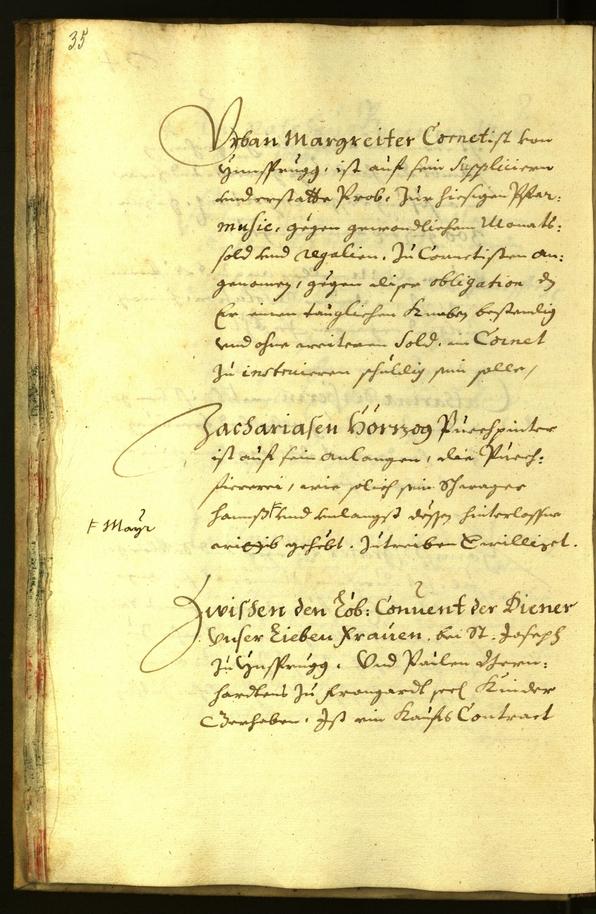 35
Vrban Margreiter Cornetist von
Ynnsprugg, ist auf sein Suppliciern
vnd erstatte Prob, Zur hiesigen Pfar:
music, gegen gewondlichem Monats:
sold vnd regalien, Zu Cornetisten an:
genomen, gegen diser obligation dz
Er einen tauglichen Knaben bestendig
vnd ohne weiteren Sold, im Cornet
Zu instruieren schuldig sein solle,
Zachariasen Hörzog Puechpinter
ist auf sein anlangen, die Puech:
fiererei, wie solich sein Schwager
hannß F vnd vnlangst dessen hinterlassne
gehebt. Zutreiben Ewilliget.
F Mayr
Zwischen den Löb: Conuent der Diener
Vnser Lieben Frauen, bei St. Joseph
Zu Ynsprugg, Vnd Paulen
hardtens Zu seel Kinder
Gerhaben, Ist ein Kaufs Contract